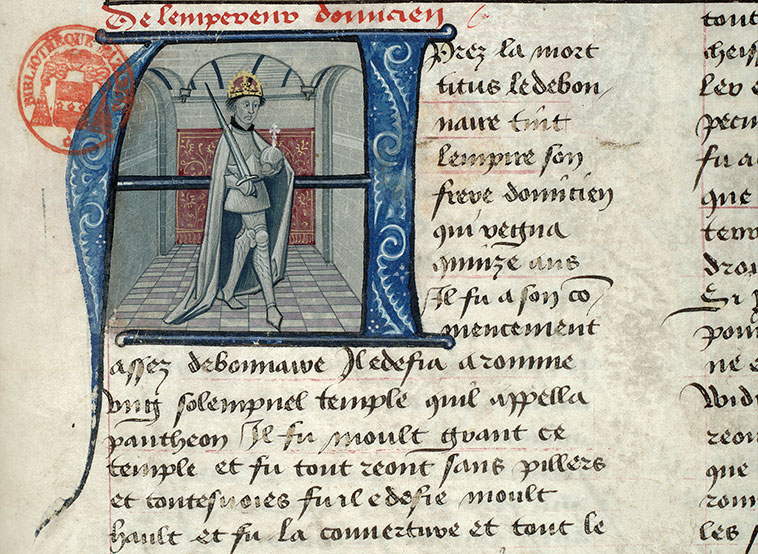 De lempereur domicien
BIBLIOTHEQUE
Aprez la mort
titus le debon
naire tint
lempire son
frere domicien
qui regna
quinze ans
Il fu a son co
mencement
assez debonnaire Il edefia a romme
vng solempnel temple quil appella
pantheon Il fu moult grant ce
temple et fu tout reont sans pillers
et toutesuoies fu il edefie moult
hault et fu la couuerture et tout le
tout
ley
pecu
fu a
que
tem
droi
Si
pour
ne e
reon
que
rom
les